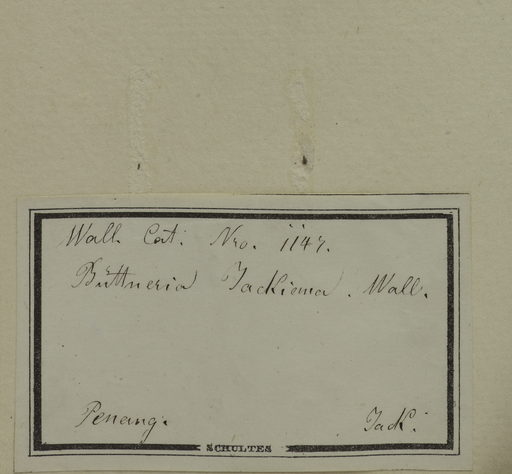 Wall. Cat. Nro. 1147.
Büttneria Jackiana. Wall.
Penang. Jack.
SCHULTES